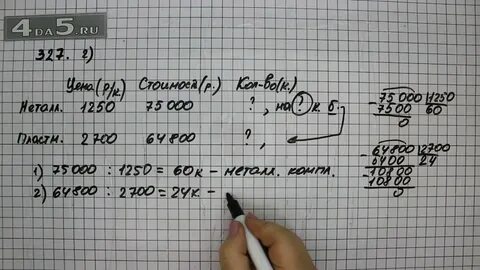 4DA5.RU
327. 2)
Цена(р/к) Стоимост(р.) Кол-во(к.)
Металл. 1250 75000 ? , на ? к б.
Пластм. 2700 64800 ? ,
1) 75000 : 1250 = 60к - металл. компл.
2) 64800 : 2700 = 24к -
- 75000 | 1250
7500 60
0
- 64800 | 2700
5400 24
- 10800
10800
0